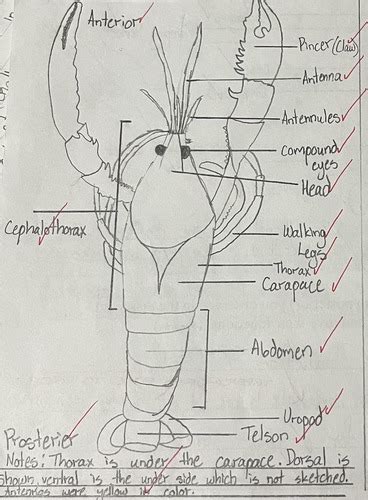 Anterior
Pincer (Claw)
Antenna
Antennules
Compound
eyes
Head
Cephalothorax
Walking
Legs
Thorax
Carapace
Abdomen
Uropod
Telson
Prosterier
Notes: Thorax is under the carapace. Dorsal is
shown. ventral is the under side which is not sketched.
Antennas were yellow in color.